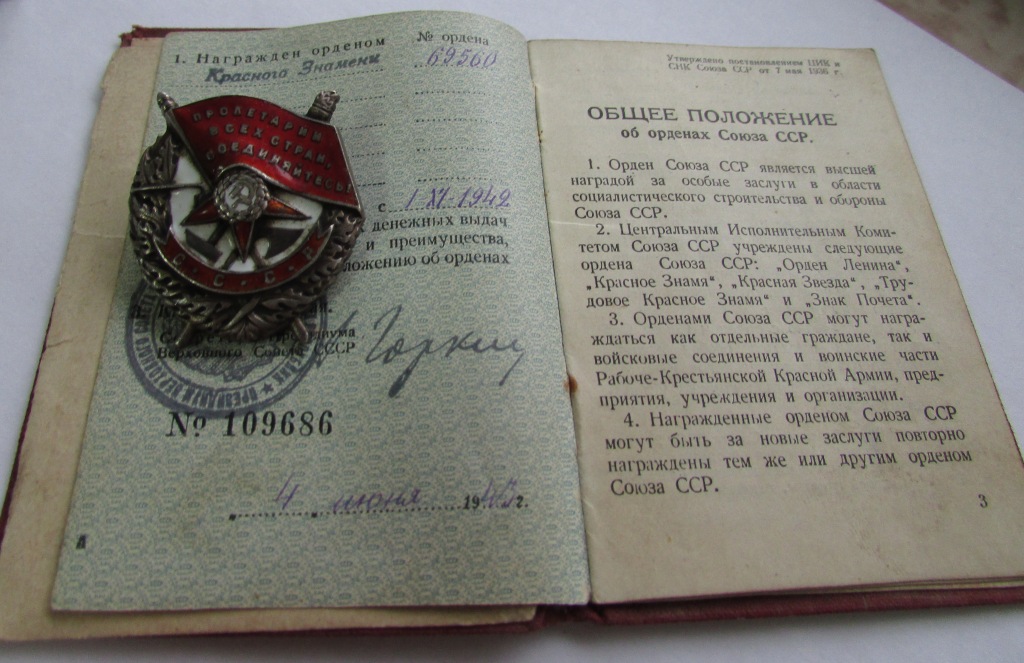 1. Награжден орденом
№ ордена
Красного Знамени
69560
ПРОЛЕТАРИИ
ВСЕХ СТРАН,
СОЕДИНЯЙТЕСЬ!
С С С Р
с 1 XI-1942
денежных выдач
и преимущества,
ложению об орденах
Президиума
Верховного Совета СССР
Горкин
№ 109686
4 июня 1943 г.
А
Утверждено постановлением ЦИК и
СНК Союза ССР от 7 мая 1936 г.
ОБЩЕЕ ПОЛОЖЕНИЕ
об орденах Союза ССР.
1. Орден Союза ССР является высшей
наградой за особые заслуги в области
социалистического строительства и обороны
Союза ССР.
2. Центральным Исполнительным Коми-
тетом Союза ССР учреждены следующие
ордена Союза ССР: „Орден Ленина“,
„Красное Знамя“, „Красная Звезда“, „Тру-
довое Красное Знамя“ и „Знак Почета“.
3. Орденами Союза ССР могут награ-
ждаться как отдельные граждане, так и
войсковые соединения и воинские части
Рабоче-Крестьянской Красной Армии, пред-
приятия, учреждения и организации.
4. Награжденные орденом Союза ССР
могут быть за новые заслуги повторно
награждены тем же или другим орденом
Союза ССР.
3